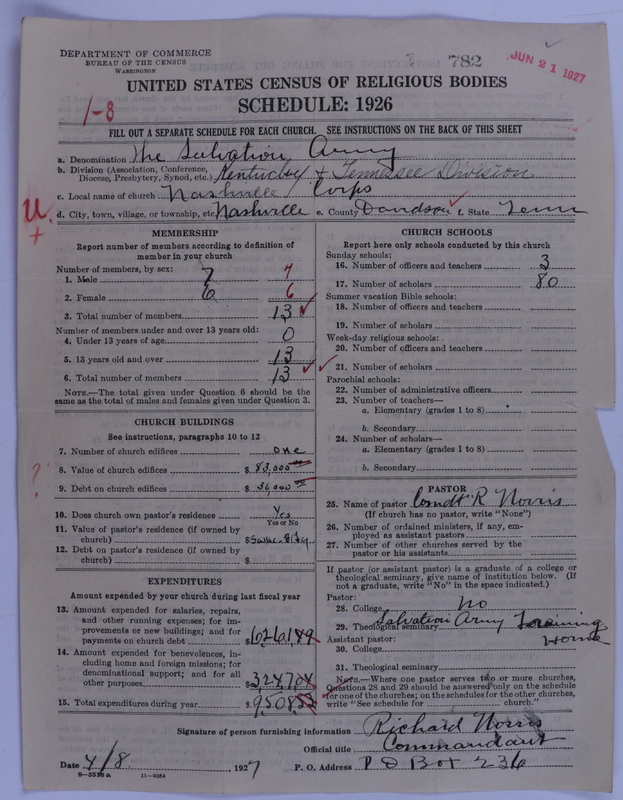 DEPARTMENT OF COMMERCE
BUREAU OF THE CENSUS
WASHINGTON
782
JUN 21 1927
UNITED STATES CENSUS OF RELIGIOUS BODIES
SCHEDULE: 1926
1-8
FILL OUT A SEPARATE SCHEDULE FOR EACH CHURCH. SEE INSTRUCTIONS ON THE BACK OF THIS SHEET
a. Denomination The Salvation Army
b. Division (Association, Conference, Diocese, Presbytery, Synod, etc.) Kentucky & Tennessee Division
c. Local name of church Nashville Corps
d. City, town, village, or township, etc. Nashville e. County Davidson f. State Tenn
U.
+
MEMBERSHIP
Report number of members according to definition of
member in your church
Number of members, by sex:
1. Male 7 7
2. Female 6 6
3. Total number of members 13
Number of members under and over 13 years old:
4. Under 13 years of age 0
5. 13 years old and over 13
6. Total number of members 13
NOTE.—The total given under Question 6 should be the
same as the total of males and females given under Question 3.
CHURCH BUILDINGS
See instructions, paragraphs 10 to 12
7. Number of church edifices one
8. Value of church edifices $ 83,000 00
?
9. Debt on church edifices $ 36,000 00
10. Does church own pastor's residence? Yes
Yes or No
11. Value of pastor's residence (if owned by
church) $ Same Bldg
12. Debt on pastor's residence (if owned by
church) $
EXPENDITURES
Amount expended by your church during last fiscal year
13. Amount expended for salaries, repairs,
and other running expenses; for im-
provements or new buildings; and for
payments on church debt $ 6261.49
14. Amount expended for benevolences, in-
cluding home and foreign missions; for
denominational support; and for all
other purposes $ 3247.04
15. Total expenditures during year $ 9508.53
CHURCH SCHOOLS
Report here only schools conducted by this church
Sunday schools:
16. Number of officers and teachers 3
17. Number of scholars 80
Summer vacation Bible schools:
18. Number of officers and teachers
19. Number of scholars
Week-day religious schools:
20. Number of officers and teachers
21. Number of scholars
Parochial schools:
22. Number of administrative officers
23. Number of teachers—
a. Elementary (grades 1 to 8)
b. Secondary
24. Number of scholars—
a. Elementary (grades 1 to 8)
b. Secondary
PASTOR
25. Name of pastor Comdt R Norris
(If church has no pastor, write "None")
26. Number of ordained ministers, if any, em-
ployed as assistant pastors
27. Number of other churches served by the
pastor or his assistants
If pastor (or assistant pastor) is a graduate of a college or
theological seminary, give name of institution below. (If
not a graduate, write "No" in the space indicated.)
Pastor:
28. College No
29. Theological seminary Salvation Army Training Home
Assistant pastor:
30. College
31. Theological seminary
NOTE.—Where one pastor serves two or more churches,
Questions 28 and 29 should be answered only on the schedule
for one of the churches; on the schedules for the other churches,
write "See schedule for church."
Signature of person furnishing information Richard Norris
Official title Commandant
Date 4/8, 1927 P. O. Address P O Box 236
8-5518 a 11-9084